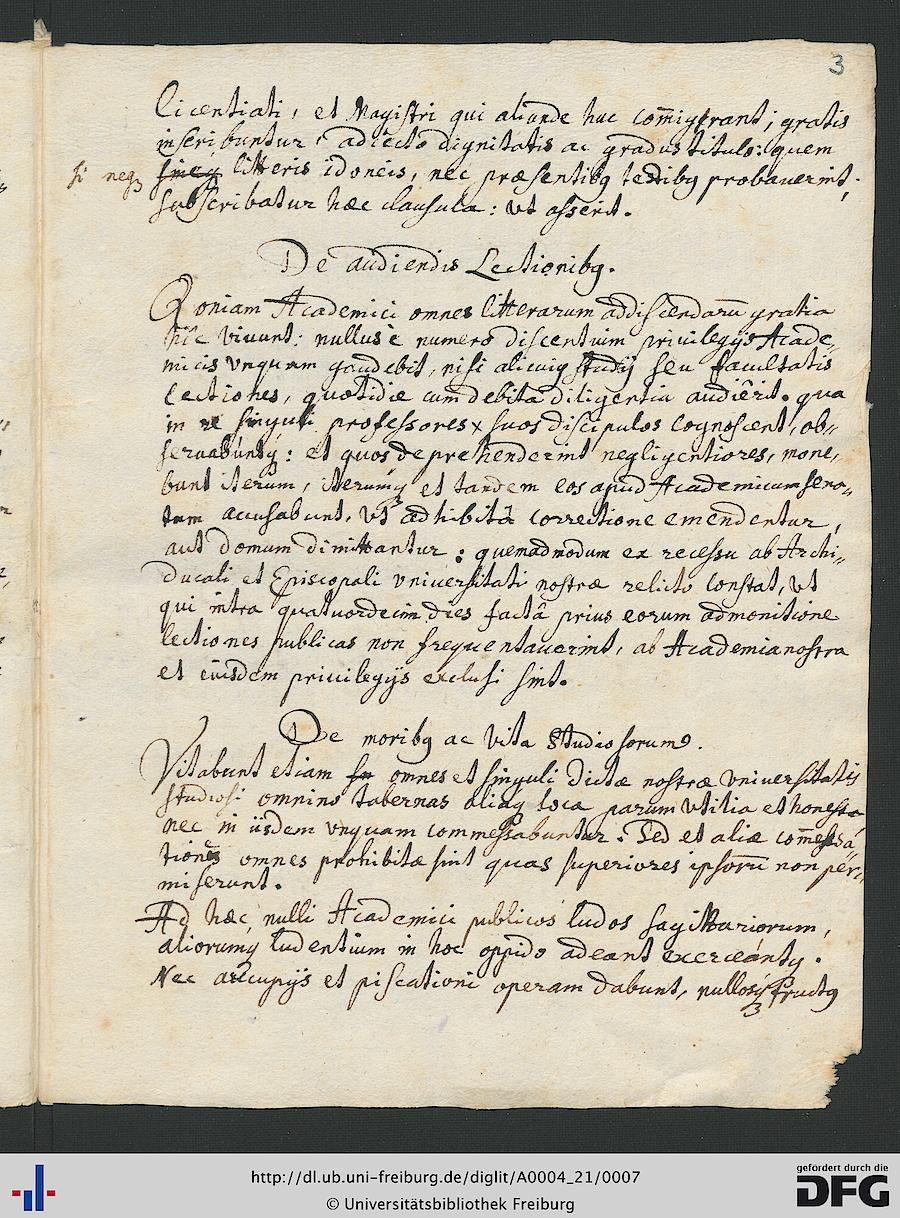 3
Licentiati, et Magistri qui aliunde huc com̄igrant; gratis
inscribuntur, adiecto dignitatis ac gradus titulo: quem
si neqȝ litteris idoneis, nec præsentibꝯ testibꝯ probauerint;
subscribatur hæc clausula: ut asserit.
De audiendis Lectionibꝯ.
Qoniam Academici omnes litterarum addiscendarū gratia
hîc viuunt: nullus è numero discentium priuilegijs Acade„
micis vnquam gaudebit, nisi alicuiꝯ studij seu facultatis
Lectiones, quotidie cum debita diligentia audiêrit. qua
in re singuli professores suos discipulos cognoscent, ob„
seruabuntqȝ: et quos deprehenderint negligentiores, mone„
bunt iterum, iterumqȝ et tandem eos apud Academicum sena„
tum accusabunt, ut adhibitâ correctione emendentur,
aut domum dimittantur: quemadmodum ex recessu ab Archi„
Ducali et Episcopali vniuersitati nostræ relicto constat, ut
qui intra quatuordecim dies factâ prius eorum admonitione
lectiones publicas non frequentauerint, ab Academia nostra
et eiusdem priuilegijs exclusi sint.
De moribꝯ ac vita Studiosorum.
Vitabunt etiam omnes et singuli dictæ nostræ vniuersitatis
studiosi omnino tabernas aliaqȝ loca parum vtilia et honesta
nec in iisdem vnquam commessabuntur. Sed et aliæ com̄essa„
tiones omnes prohibitæ sint quas superiores ipsorū non per„
miserunt.
Ad hæc, nulli Academici publicos ludos sagittariorum,
aliorumqȝ ludentium in hoc oppido adeant exerceantqȝ.
Nec aucupijs et piscationi operam dabunt, nullosqȝ fructꝯ
http://dl.ub.uni-freiburg.de/diglit/A0004_21/0007
© Universitätsbibliothek Freiburg
gefördert durch die
DFG